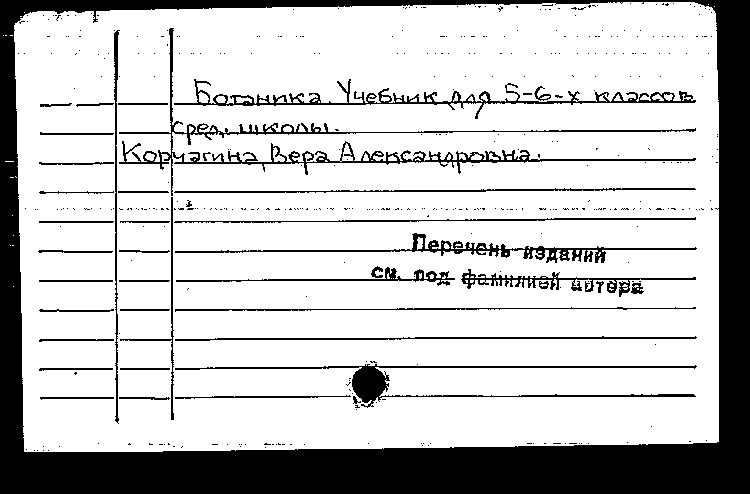 Ботаника. Учебник для 5-6-х классов
сред. школы.
Корчагина, Вера Александровна.
Перечень изданий
см. под фамилией автора